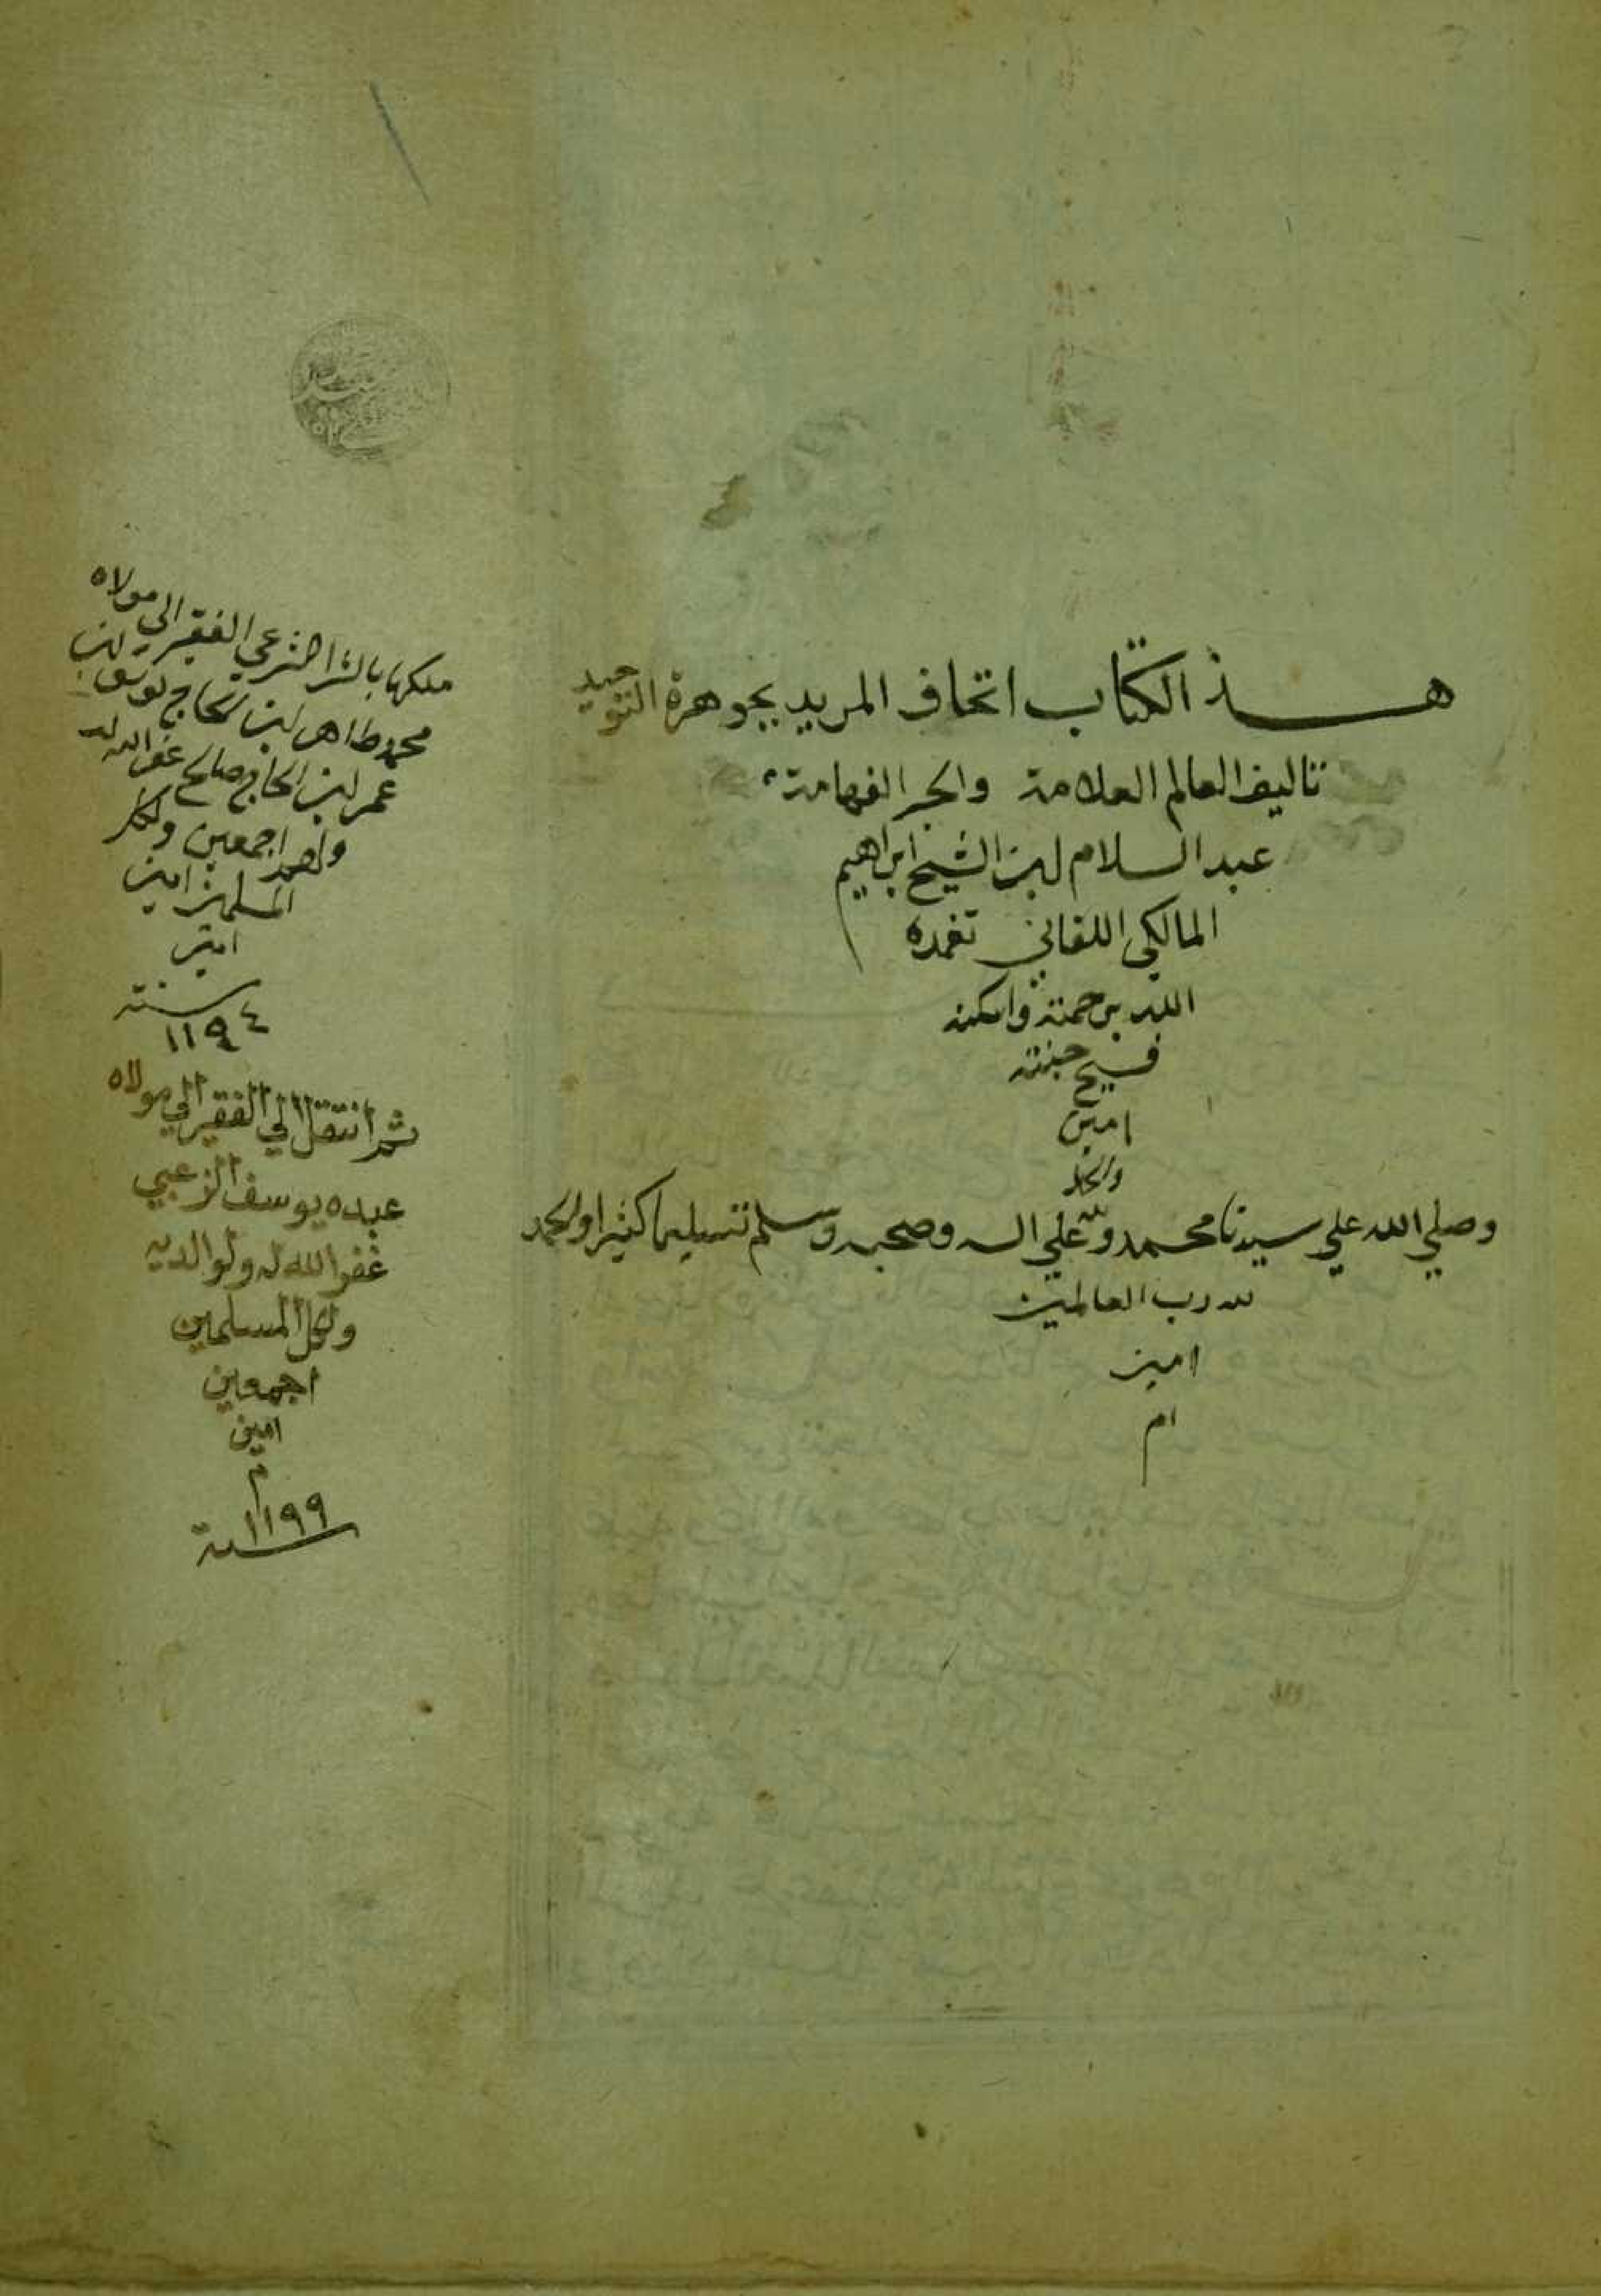 هذا الكتاب اتحاف المريد بجوهرة التوحيد
تاليف العالم العلامة والحبر الفهامة
عبد السلام ابن الشيخ ابراهيم
المالكي اللقاني تغمده
الله برحمته واسكنه
فسيح جنته
امين
وصلي الله علي سيدنا محمد وعلي اله وصحبه وسلم تسليما كثيرا والحمد
لله رب العالمين
امين
ام
ملكها بالشرا الشرعي الفقير الي مولاه
محمد طاهر ابن الحاج يوسف ابن
عمر ابن الحاج صالح غفر الله له
ولهم اجمعين ولكل
المسلمين امين
امين
سنة
١١٩٤
ثم انتقل الي الفقير الي مولاه
عبده يوسف الزعبي
غفر الله له ولوالديه
ولكل المسلمين
اجمعين
امين
م
١١٩٩
سنة